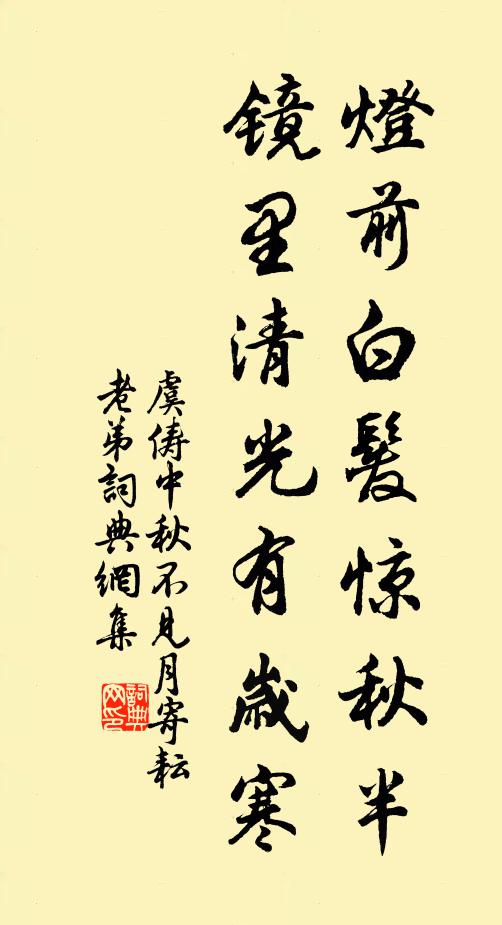 燈前白髮惊秋半
镜里清光有歲寒
虞俦中秋不見月寄耘
老弟詞典網集
詞典网印